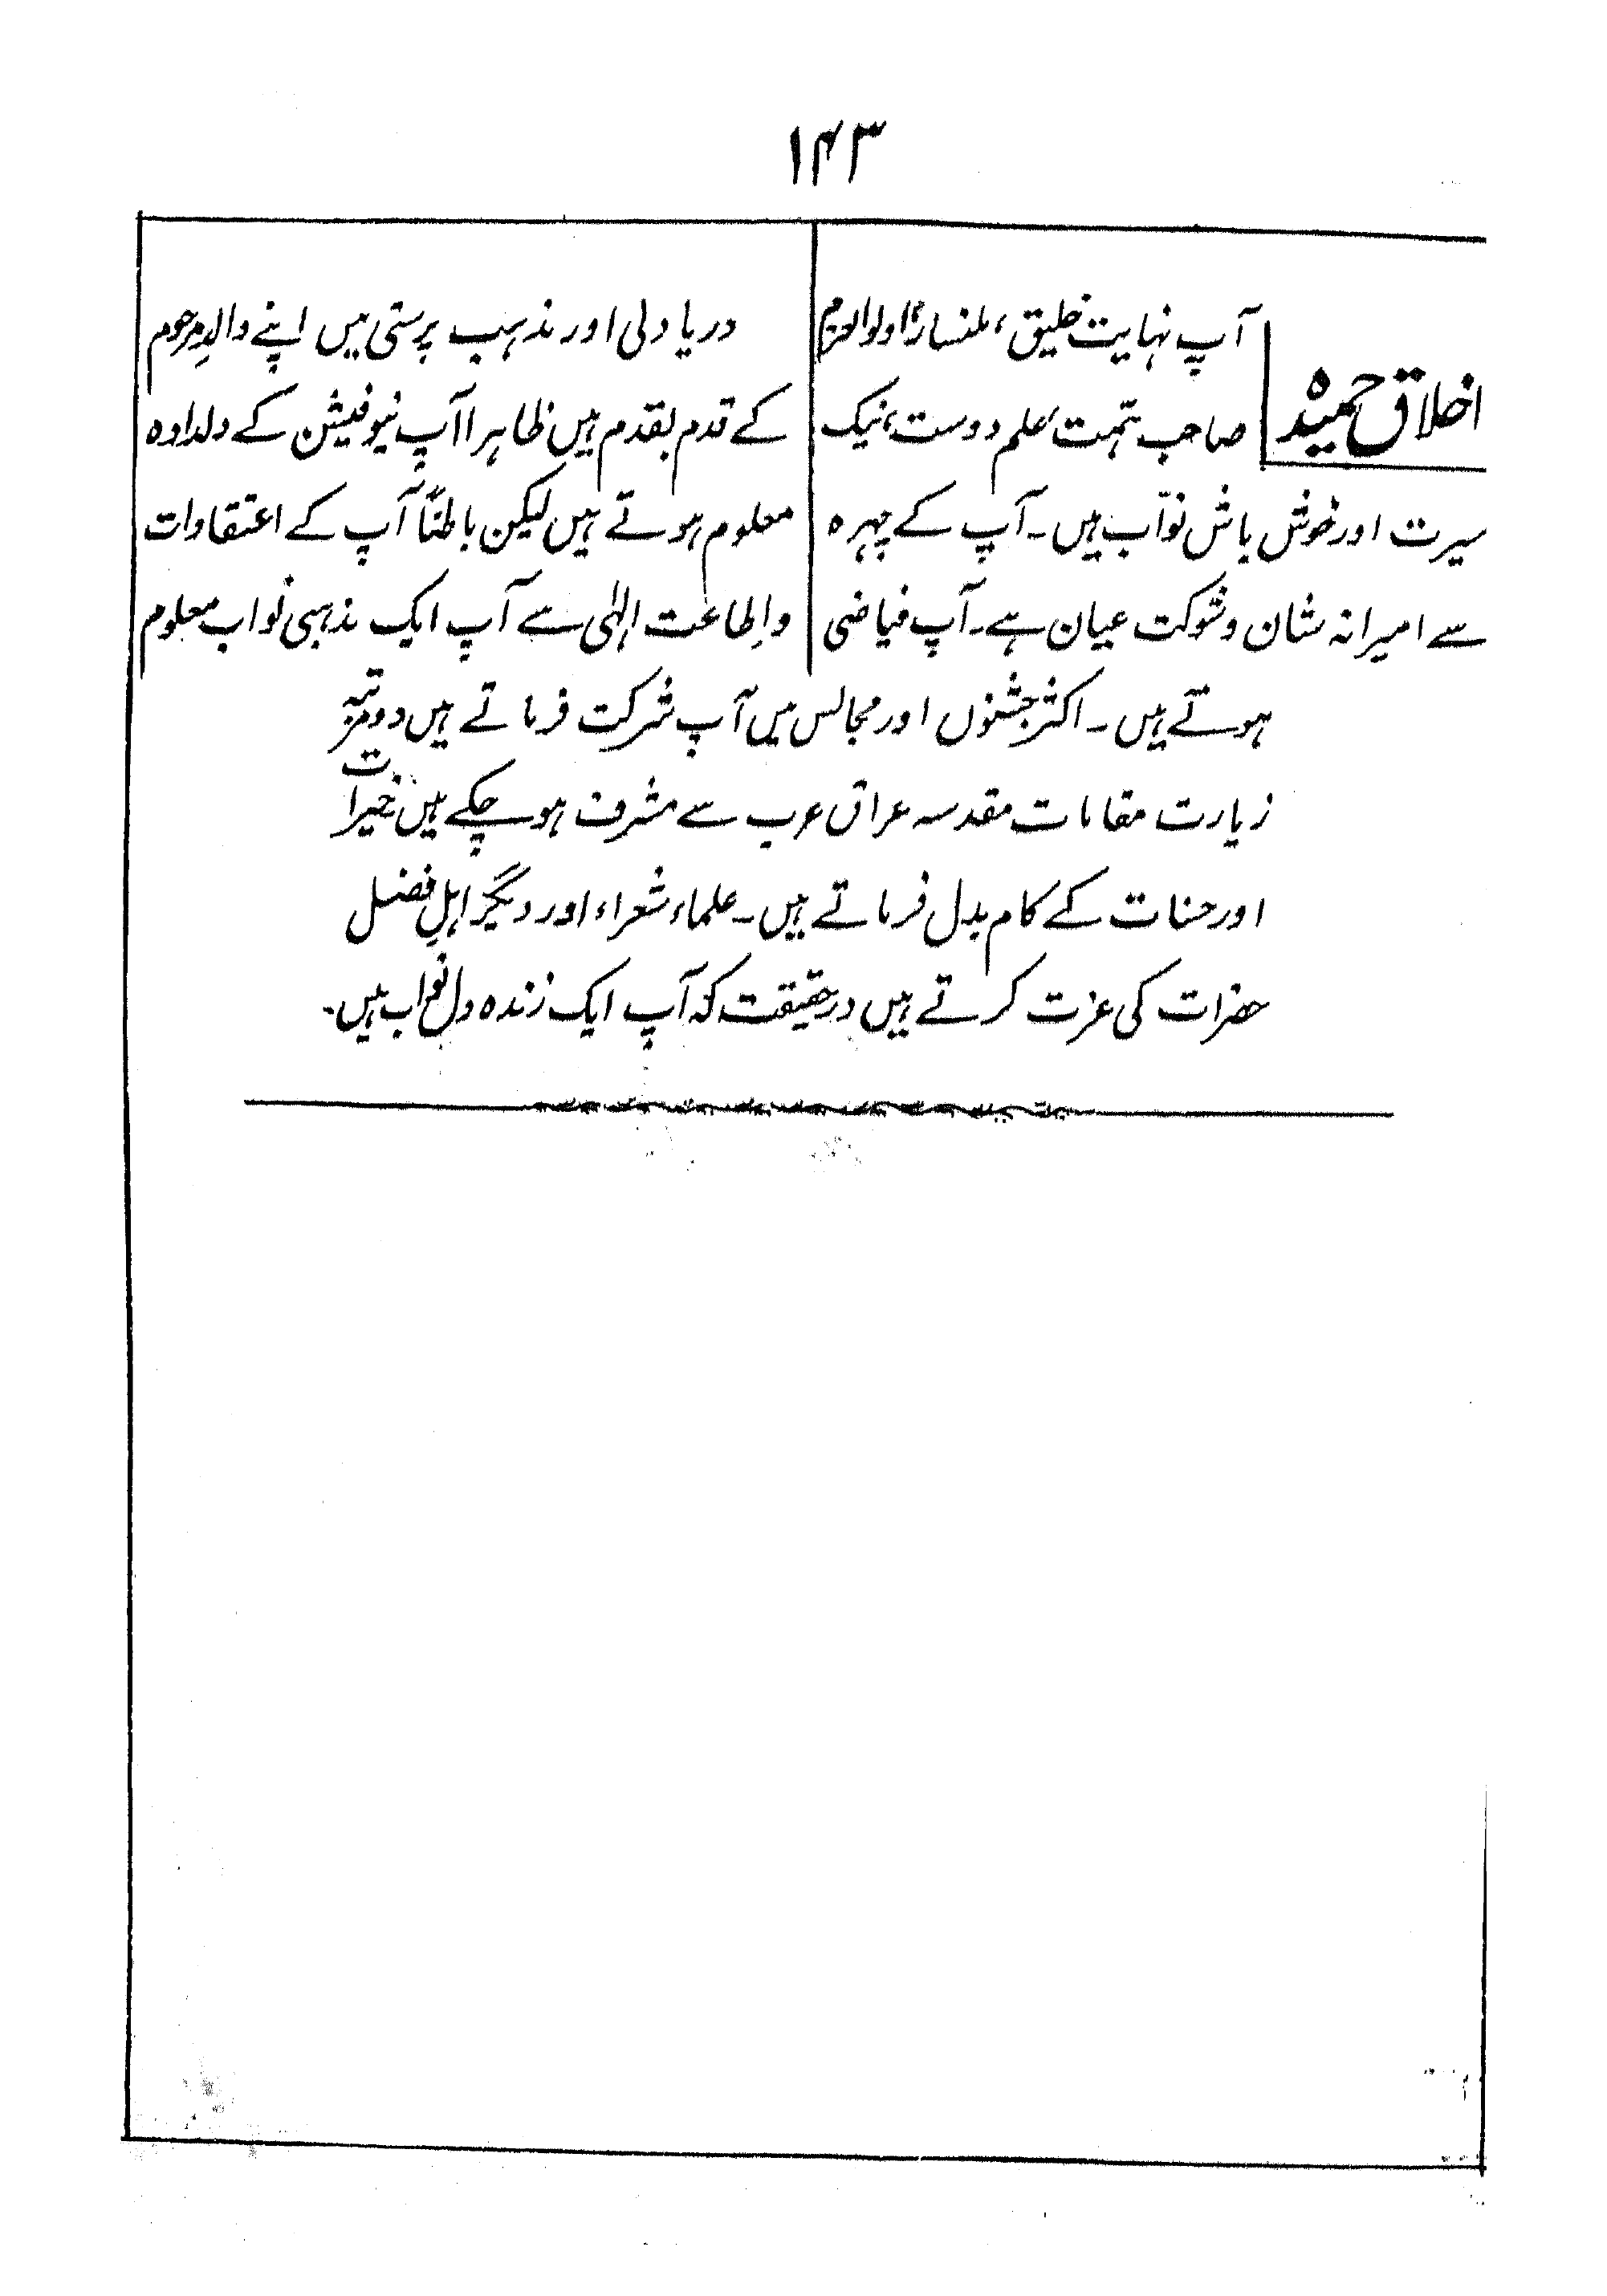 ۱۴۳
اخلاق حمیدہ
آپ نہایت خلیق، ملنسار، اولوالعزم
صاحب ہمت، علم دوست، نیک
سیرت اور خوش باش نوّاب ہیں۔ آپ کے چہرہ
سے امیرانہ شان و شوکت عیان ہے۔ آپ فیاضی
دریا دلی اور مذہب پرستی میں اپنے والدِ مرحوم
کے قدم بقدم ہیں ظاہرا آپ نیو فیشن کے دلدادہ
معلوم ہوتے ہیں لیکن باطناً آپ کے اعتقادات
و اِطاعت الہٰی سے آپ ایک مذہبی نواب معلوم
ہوتے ہیں۔ اکثر جشنوں اور مجالس میں آپ شرکت فرماتے ہیں دو مرتبہ
زیارت مقامات مقدسہ عراق عرب سے مشرف ہو چکے ہیں خیرات
اور حسنات کے کام بدل فرماتے ہیں۔ علماء شعراء اور دیگر اہلِ فضل
حضرات کی عزت کرتے ہیں درحقیقت کہ آپ ایک زندہ دل نواب ہیں۔